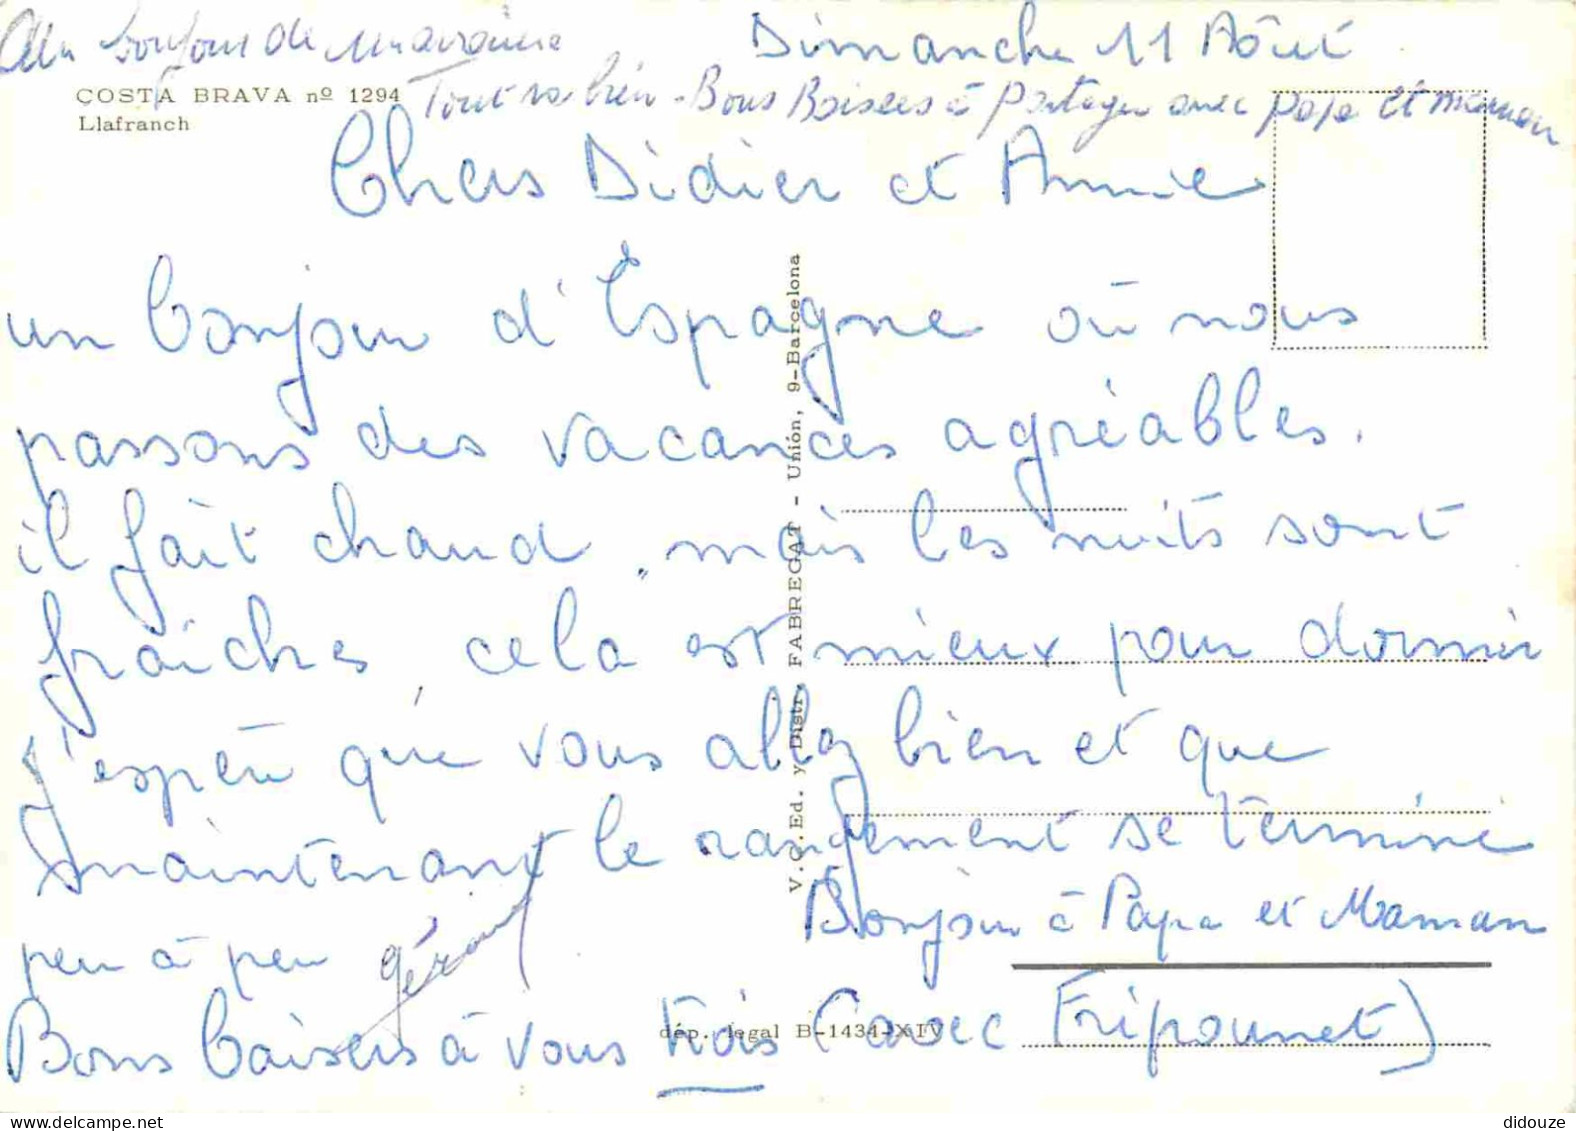 Un bonjour de Marraine
Dimanche 11 Aôut
Tout va bien - Bons Baisers à partager avec papa et maman
COSTA BRAVA nº 1294
Llafranch
Chers Didier et Annie
un bonjour d'Espagne où nous
passons des vacances agréables.
il fait chaud, mais les nuits sont
fraîches cela est mieux pour dormir
j'espère que vous allez bien et que
maintenant le rangement se termine
peu à peu Gérard
Bonjour à Papa et Maman
Bons baisers à vous trois (avec Fripounet)
V. O. Ed. y Distr. FABREGAT - Unión, 9-Barcelona
dép. legal B-1434-XIV
didouze